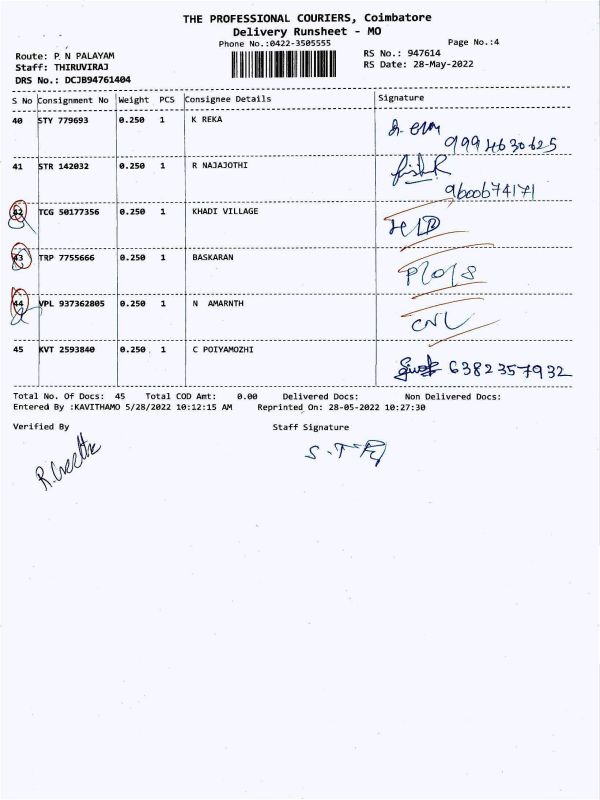 THE PROFESSIONAL COURIERS, Coimbatore
Delivery Runsheet - MO
Phone No.:0422-3505555 Page No.:4
Route: P. N PALAYAM RS No.: 947614
Staff: THIRUVIRAJ RS Date: 28-May-2022
DRS No.: DCJB94761404
S No Consignment No Weight PCS Consignee Details Signature
40 STY 779693 0.250 1 K REKA
9994630625
41 STR 142032 0.250 1 R NAJAJOTHI
9600674171
42 TCG 50177356 0.250 1 KHADI VILLAGE
43 TRP 7755666 0.250 1 BASKARAN
44 VPL 937362805 0.250 1 N AMARNTH
CNL
45 KVT 2593840 0.250 1 C POIYAMOZHI
6382357932
Total No. Of Docs: 45 Total COD Amt: 0.00 Delivered Docs: Non Delivered Docs:
Entered By :KAVITHAMO 5/28/2022 10:12:15 AM Reprinted On: 28-05-2022 10:27:30
Verified By Staff Signature